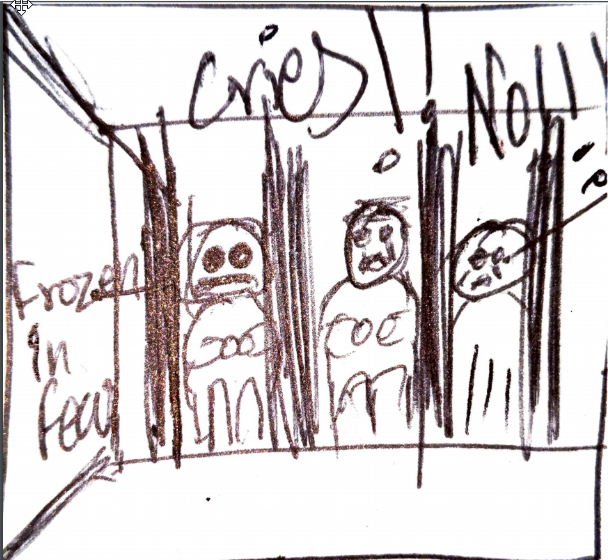 cries!!
No!!!
Frozen
in
fear